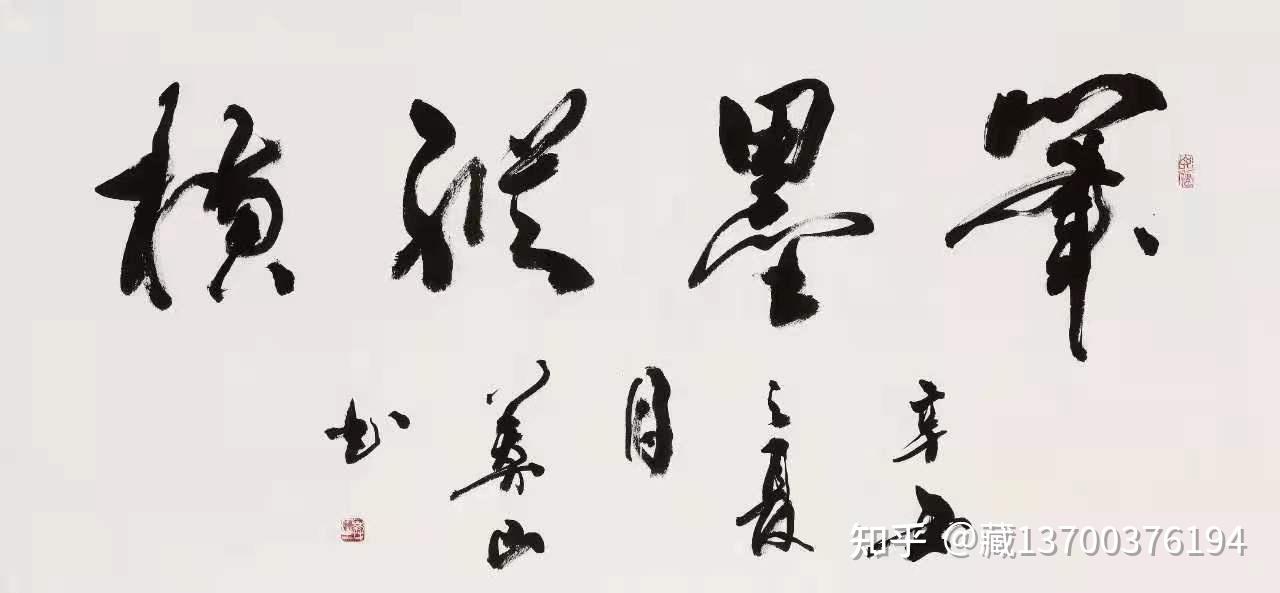 筆墨縱橫
辛丑
之夏
月
山
书
知乎 @藏13700376194